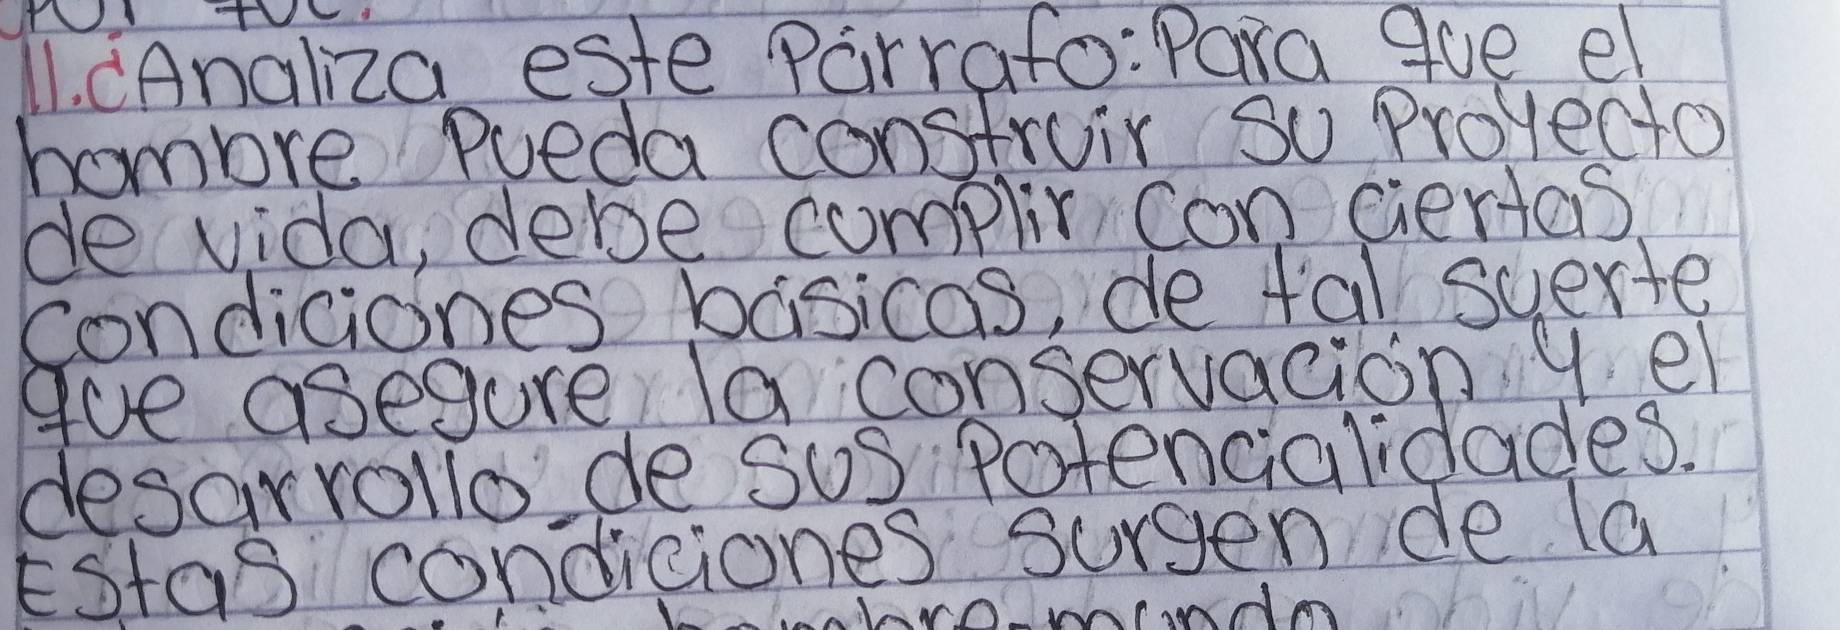 11.¿Analiza este Párrafo: Para que el
hombre Pueda construir su Proyecto
de vida, debe cumplir con ciertas
condiciones básicas, de tal suerte
que asegure la conservación y el
desarrollo de sus Potencialidades.
Estas condiciones surgen de la
hombre-mundo